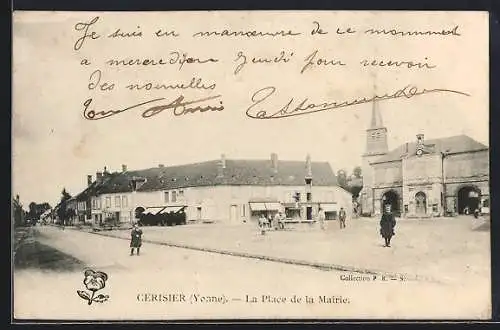 Je suis en manœuvre de ce monument
a mercredi jeudi pour recevoir
des nouvelles
Ton Ami
Collection P. R. - S.
CERISIER (Yonne). — La Place de la Mairie.